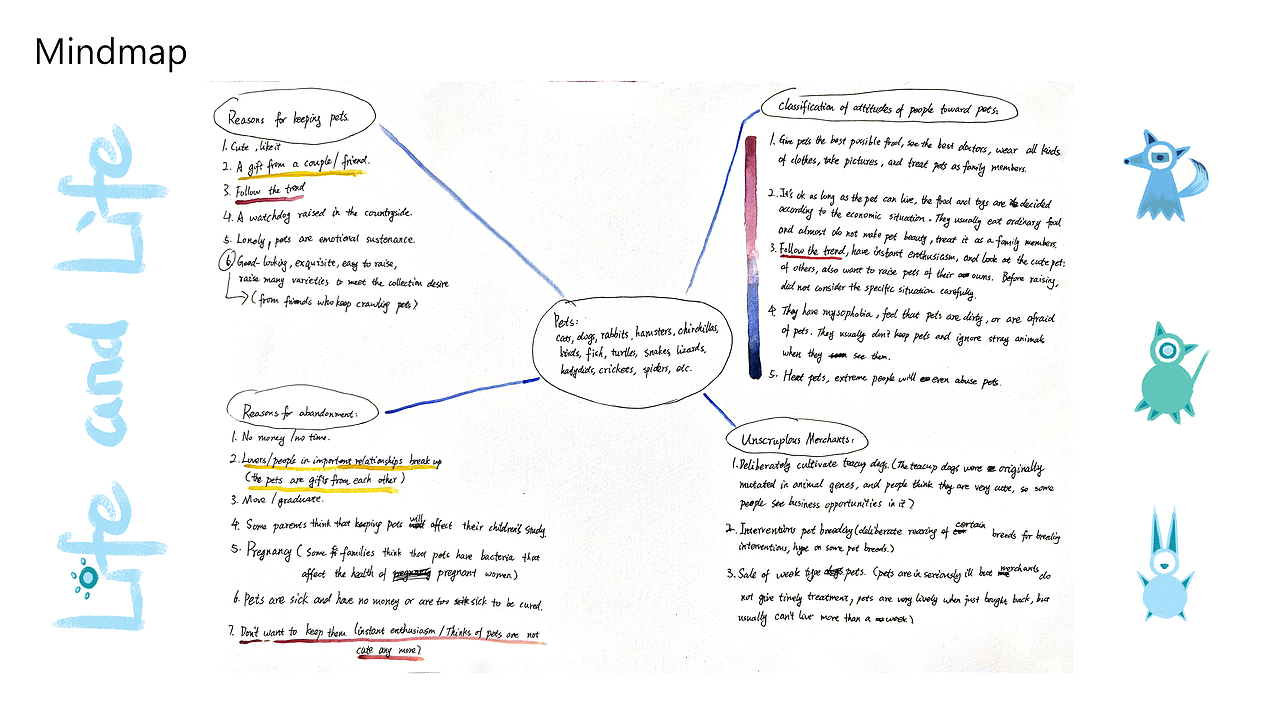 Mindmap
Life and Life
Reasons for keeping pets.
1. Cute, like it
2. A gift from a couple/friend.
3. Follow the trend
4. A watchdog raised in the countryside.
5. Lonely, pets are emotional sustenance.
6. Good-looking, exquisite, easy to raise,
raise many varieties to meet the collection desire
(from friends who keep crawling pets)
Classification of attitudes of people toward pets:
1. Give pets the best possible food, see the best doctors, wear all kinds
of clothes, take pictures, and treat pets as family members.
2. It's ok as long as the pet can live, the food and toys are decided
according to the economic situation. They usually eat ordinary food
and almost do not make pet beauty, treat it as a family members.
3. Follow the trend, have instant enthusiasm, and look at the cute pet:
of others, also want to raise pets of their owns. Before raising,
did not consider the specific situation carefully.
4. They have mysophobia, feel that pets are dirty, or are afraid
of pets. They usually don't keep pets and ignore stray animals
when they see them.
5. Hate pets, extreme people will even abuse pets.
Pets:
cats, dogs, rabbits, hamsters, chinchillas,
birds, fish, turtles, snakes, lizards,
katydids, crickets, spiders, etc.
Reasons for abandonment:
1. No money/no time.
2. Lovers/people in important relationships break up
(the pets are gifts from each other)
3. Move/graduate.
4. Some parents think that keeping pets will affect their children's study.
5. Pregnancy (Some families think that pets have bacteria that
affect the health of pregnant women)
6. Pets are sick and have no money or are too sick to be cured.
7. Don't want to keep them (instant enthusiasm/Thinks of pets are not
cute any more)
Unscruplous Merchants:
1. Deliberately cultivate teacup dogs. (The teacup dogs were originally
mutated in animal genes, and people think they are very cute, so some
people see business opportunities in it)
2. Interventions pet breeding (deliberate rearing of certain breeds for breeding
interventions, hype on some pet breeds.)
3. Sale of week type pets. (pets are in seriously ill but merchants do
not give timely treatment, pets are very lively when just bought back, but
usually can't live more than a week)